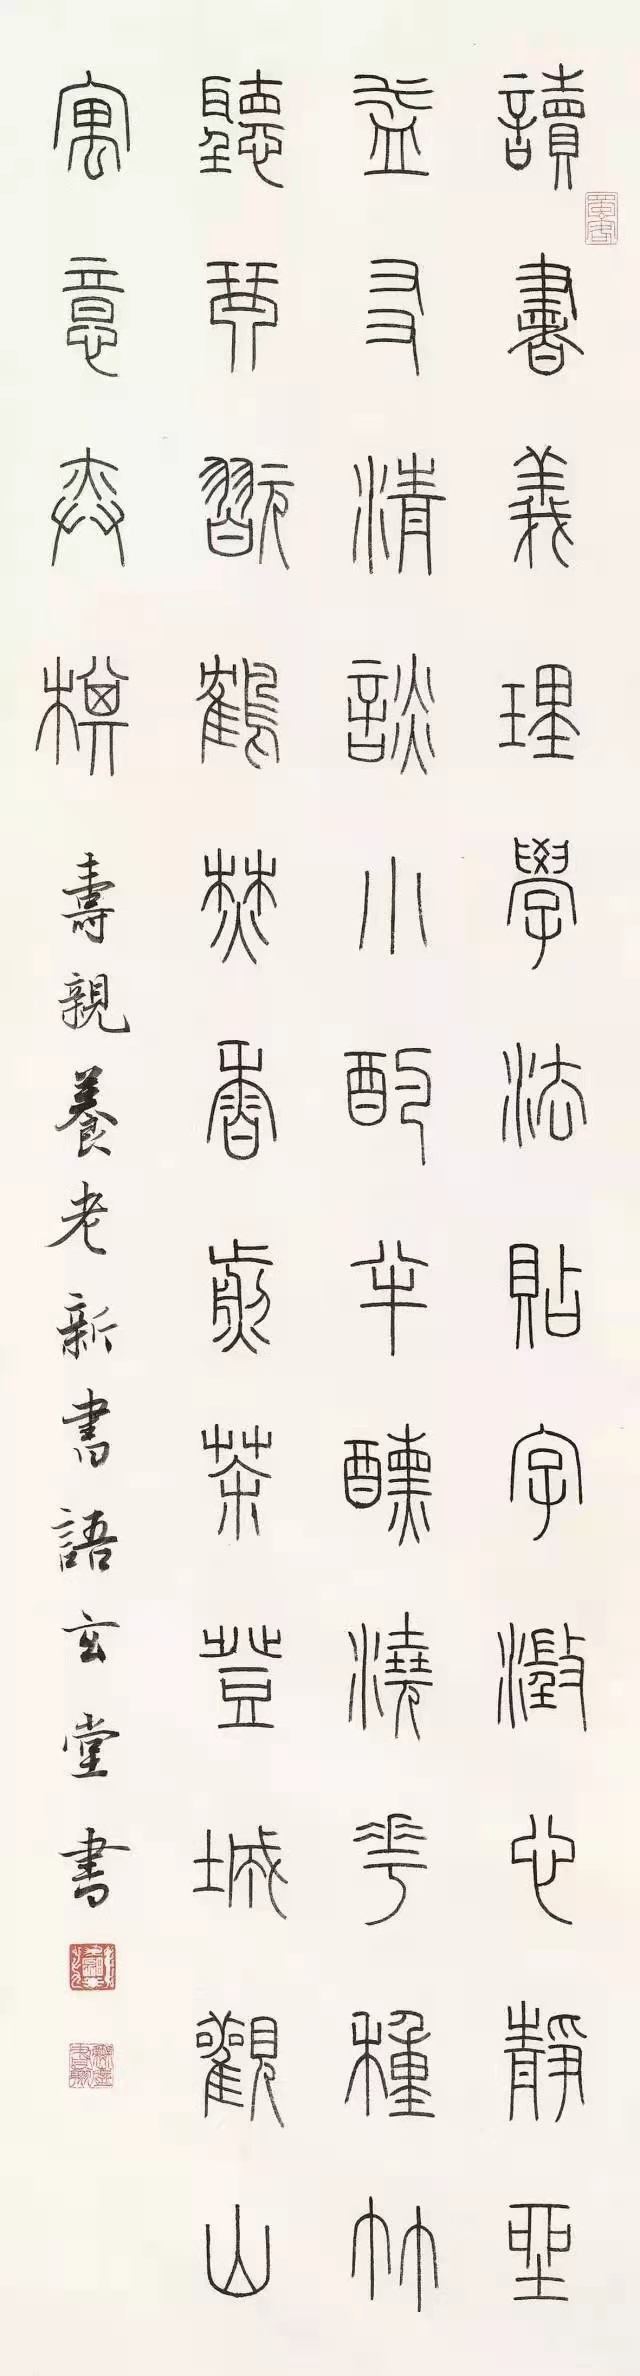 讀書義理學法貼字澂心靜坐
益友清談小酌半醺澆花種竹
聽琴翫鶴焚香煎茶登城觀山
寓意弈棋
壽親養老新書語玄堂書